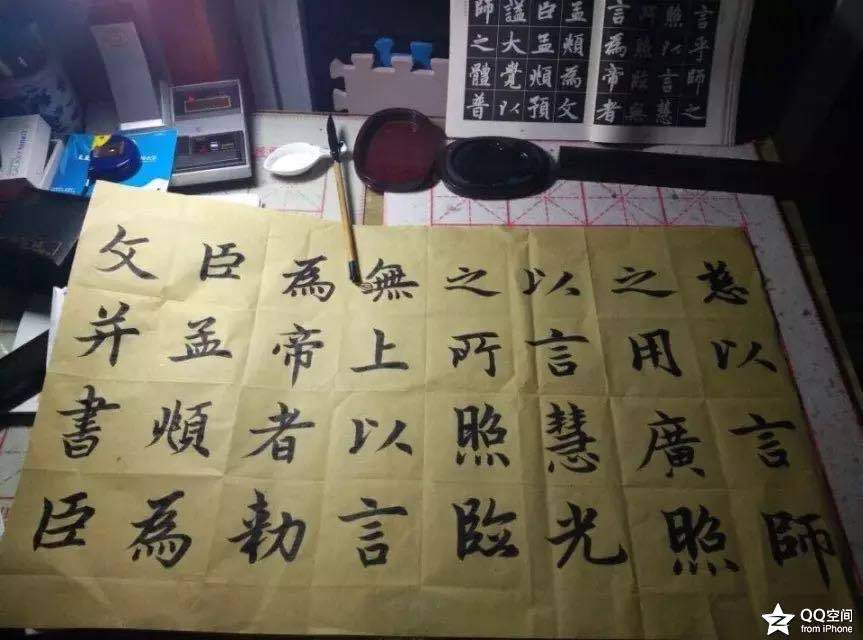 慈以言師
之用廣照
以言慧光
之所照臨
無上以言
為帝者勅
臣孟頫為
文并書臣
言乎師之
照以言慧
所照臨無
言為帝者
孟頫為文
臣孟頫預
謚大覺以
師之體普
QQ空间
from iPhone